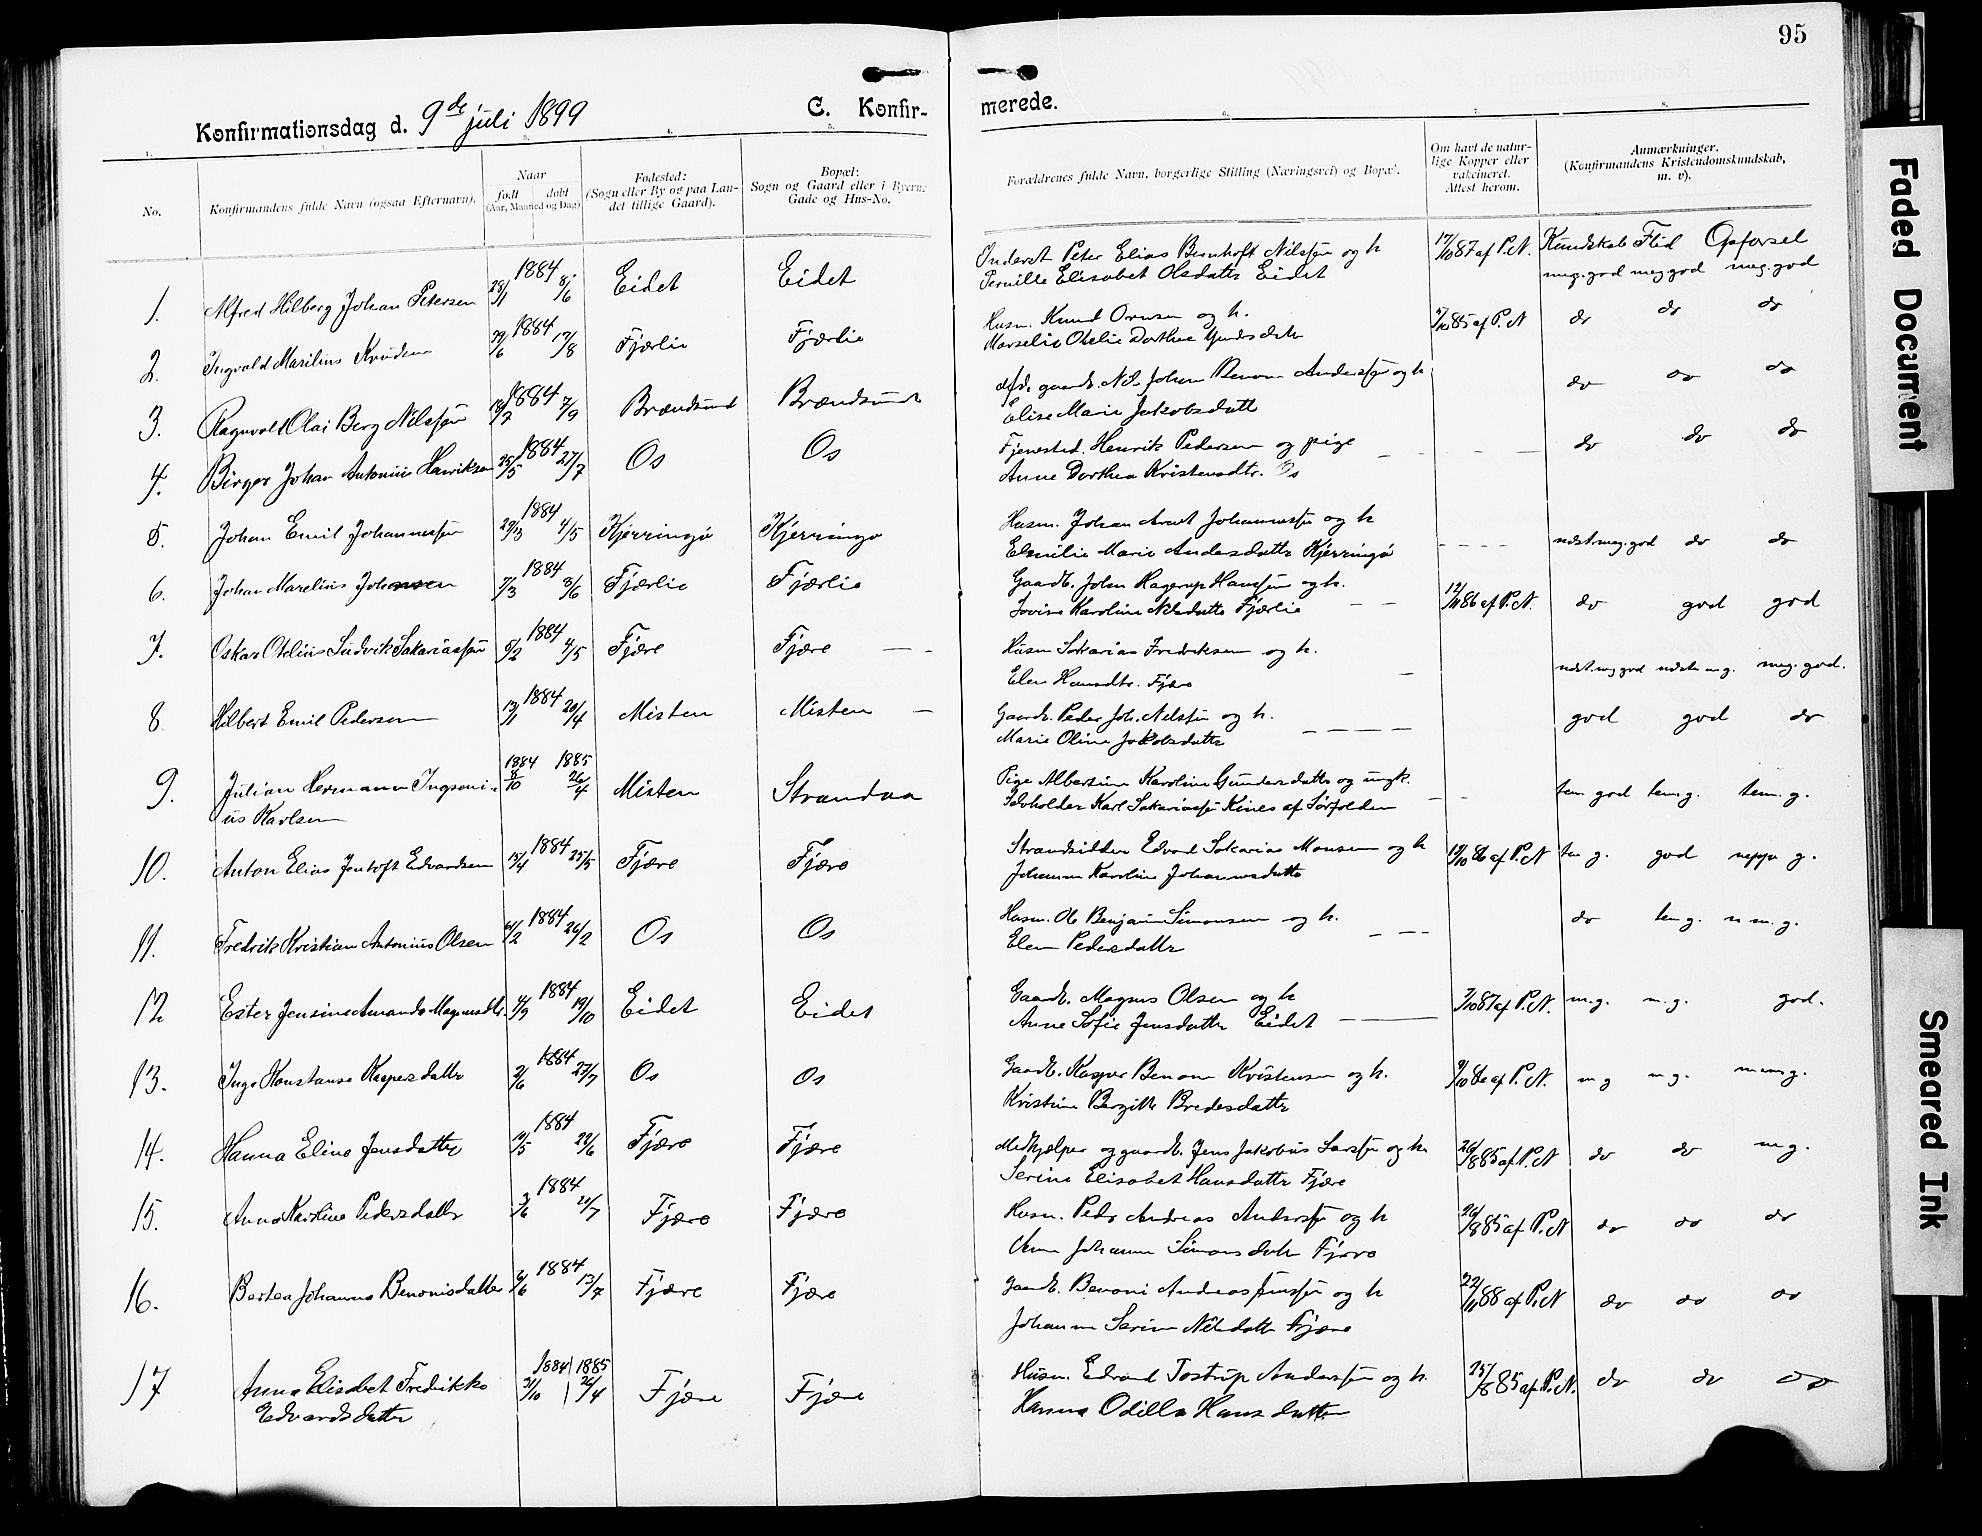 95
Konfirmationsdag d. 9de juli 1899
C. Konfir-
merede.
1. 2. 3. 4. 5. 6. 7. 8.
No.
Konfirmandens fulde Navn (ogsaa Efternavn).
Naar
født døbt
(Aar, Maaned og Dag)
Fødested:
(Sogn eller By og paa Lan-
det tillige Gaard).
Bopæl:
Sogn og Gaard eller i Byerne
Gade og Hus-No.
Forældrenes fulde Navn, borgerlige Stilling (Næringsvei) og Bopæl.
Om havt de natur-
lige Kopper eller
vakcineret.
Attest herom.
Anmærkninger.
(Konfirmandens Kristendomskundskab,
m. v).
Kundskab Flid Opførsel
1. Alfred Hilberg Johan Petersen 28/1 1884 8/6 Eidet Eidet
Inderst Peter Elias Bernhoft Nilssøn og h
Pernille Elisabet Olsdatter Eidet
17/10 87 af P.N. meg. god meg god meg. god
2. Ingvald Marilius Knudsen 29/6 1884 17/8 Fjærlie Fjærlie
Husm. Knud Ornsen og h.
Marselie Otelie Dorthea
/10 85 af P.N do do do
3. Ragnvald Olai Berg Nilssøn 1884 7/9 Brændsund Brændsund
gaardb. Nils Johan Benoni Anderssøn og h
Elise Marie Jakobsdatter
do do do
4. Birger Johan Antonius Henriksen 25/5 1884 27/7 Os Os
Tjenested. Henrik Pedersen og pige
Anne Dorthea Kristensdtr. Os
do do do
5. Johan Emil Johannessøn 29/3 1884 4/5 Kjerringø Kjerringø
Husm. Johan Arnt Johannessøn og h
Emilie Marie Andersdatter Kjerringø
næst. meg. god do do
6. Johan Marelius Johansen 7/3 1884 8/6 Fjærlie Fjærlie
Gaardb. John Hagerup Hanssøn og h.
Lovise Karoline Nilsdatter Fjærlie
12/11 86 af P.N. do god god
7. Oskar Otelius Ludvik Sakariassøn 5/2 1884 4/5 Fjære Fjære
Husm Sakarias Fredriksen og h.
Elen Hansdtr. Fjære
næst. meg god næst m g. meg. god.
8. Hilbert Emil Pedersen 13/1 1884 20/4 Misten Misten
Gaardb. Peder Joh. Nilssøn og h.
Marie Oline Jakobsdatter
god god do
9. Julian Hermann Ingvoni-
us Karlsen 1884 8/10 1885 26/4 Misten Strandaa
Pige Albertine Karoline Gundersdatter og ungk.
Selvholder Karl Sakariassøn Kines af Sørfolden
tem god tem g. tem. g.
10. Anton Elias Jentoft Edvardsen 15/4 1884 25/5 Fjære Fjære
Strandsidder Edvard Sakarias Monsen og h
Johanna Karoline Johannesdatter
19/10 86 af P.N tem g. god neppe g.
11. Fredrik Kristian Antonius Olsen /2 1884 26/2 Os Os
Husm. Ole Benjamin Simonsen og h.
Elen Pedersdatter
do tem g. n m. g.
12 Ester Jensine Amanda Magnusdtr. /9 1884 19/10 Eidet Eidet
Gaardb. Magnus Olsen og h
Anne Sofie Jensdatter Eidet
7/10 87 af P.N. m. g. m. g. god.
13. Inga Konstanse Kaspersdatter 2/6 1884 27/7 Os Os
Gaardb. Kasper Benoni Kristensen og h.
Kristine Bergitte Bredesdatter
9/10 86 af P.N. m g m g. m g.
14. Hanna Eline Jensdatter 10/5 1884 22/6 Fjære Fjære
Medhjælper og gaardb. Jens Jakobus Larssøn og h.
Serine Elisabet Hansdatter Fjære
26/8 85 af P.N do do m g.
15. Anna Karoline Pedersdatter 3/6 1884 20/7 Fjære Fjære
Husm. Peder Andreas Anderssøn og h
Johanna Simonsdatter Fjære
26/8 85 af P.N do do do
16. Bertea Johanna Benonisdatter 2/6 1884 13/7 Fjære Fjære
gaardb. Benoni Andreas Jenssøn og h
Johanna Serine Nilsdatter Fjære
22/11 88 af P.N do do do
17 Anna Elisabet Fredrikke
Edvardsdatter 1884 2/10 1885 26/4 Fjære Fjære
Husm. Edvard Tostrup Anderssøn og h.
Hanna Odilla Hansdatter
25/8 85 af P.N. do do do
Faded Document
Smeared Ink